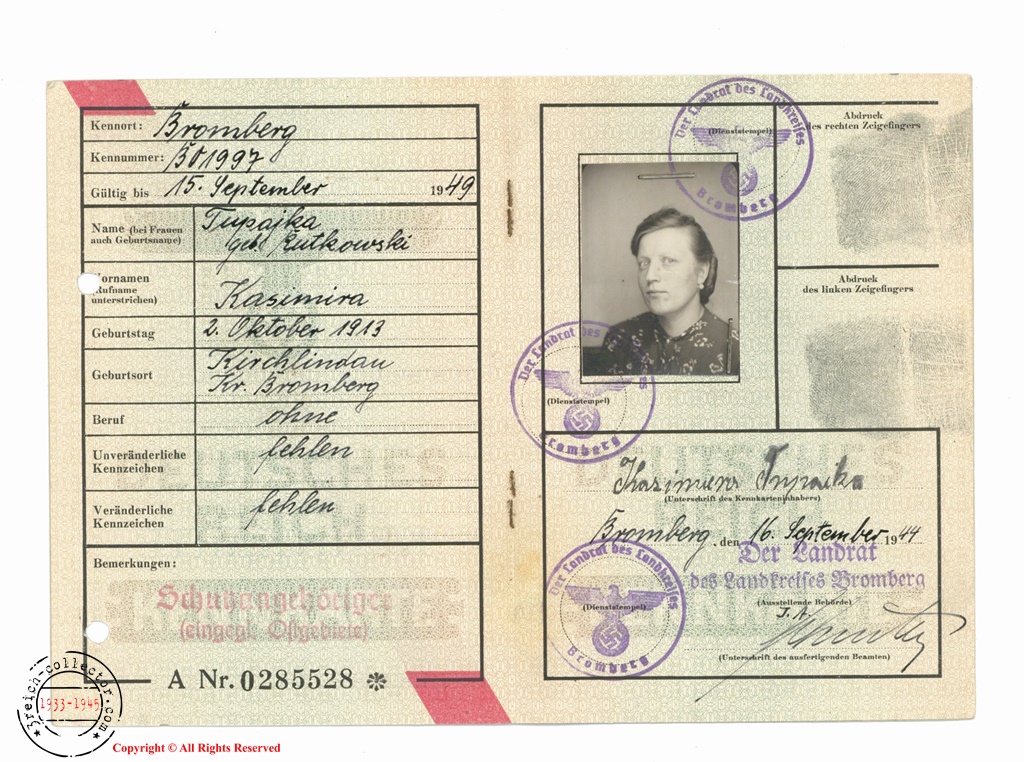 Kennort: Bromberg
Kennummer: B01997
Gültig bis 15. September 1949
Name (bei Frauen auch Geburtsname)
Tupajka
geb. Rutkowski
Vornamen
(Rufname
unterstrichen)
Kasimira
Geburtstag 2. Oktober 1913
Geburtsort
Kirchlindau
Kr. Bromberg
Beruf ohne
Unveränderliche
Kennzeichen
fehlen
Veränderliche
Kennzeichen
fehlen
Bemerkungen:
Schutzangehöriger
(eingegl. Ostgebiete)
A Nr. 0285528 ✻
3reich-collector.com
1933-1945
Copyright © All Rights Reserved
Der Landrat des Landkreises
(Dienststempel)
Bromberg
Abdruck
des rechten Zeigefingers
Abdruck
des linken Zeigefingers
Der Landrat des Landkreises
(Dienststempel)
Bromberg
DEUTSCHES
REICH
Kazimiera Tupajka
(Unterschrift des Kennkarteninhabers)
Bromberg, den 16. September 1944
Der Landrat
des Landkreises Bromberg
(Ausstellende Behörde)
I.A.
(Unterschrift des ausfertigenden Beamten)
Der Landrat des Landkreises
(Dienststempel)
Bromberg